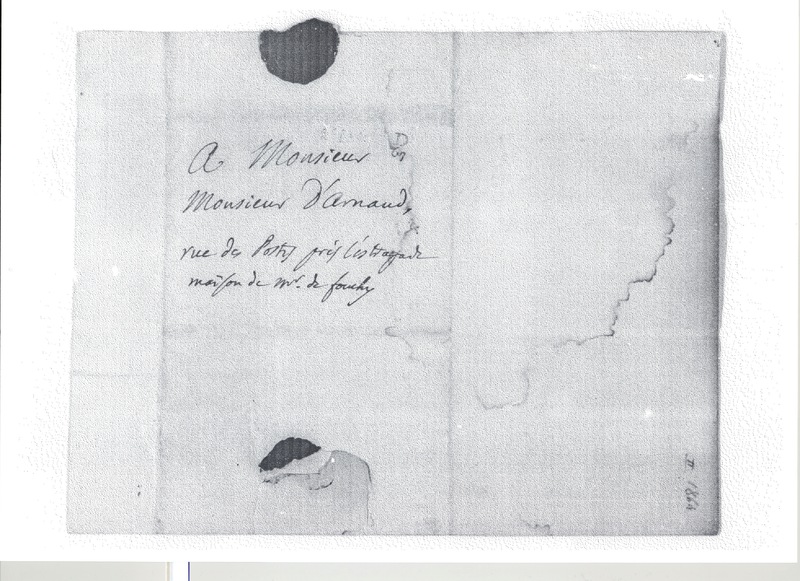 A Monsieur
Monsieur D'arnaud,
rue des Postes près l'estrapade
maison de mr. de fouchy
1864